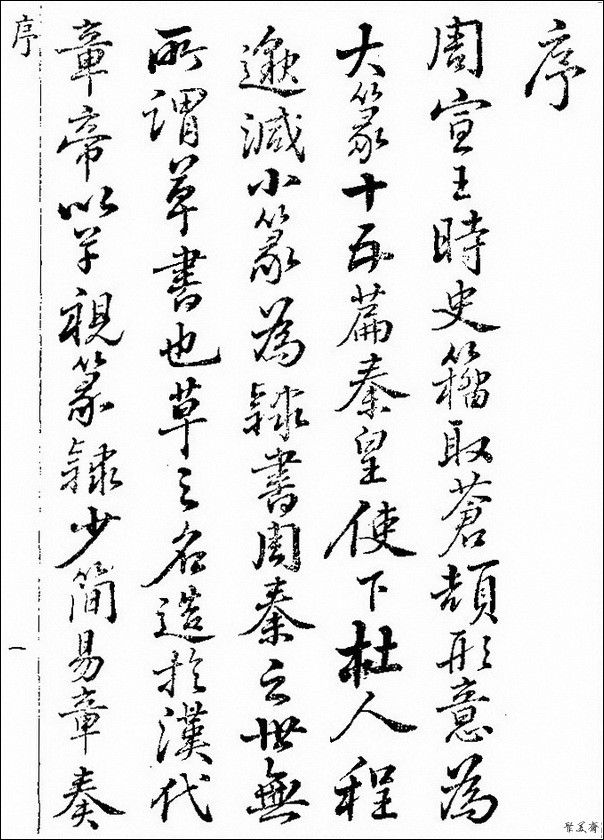 序
周宣王時史籀取蒼頡形意為
大篆十五篇秦皇使下杜人程
邈減小篆為隸書周秦之世無
所謂草書也草之名造於漢代
章帝以草視篆隸少簡易章奏
序
一